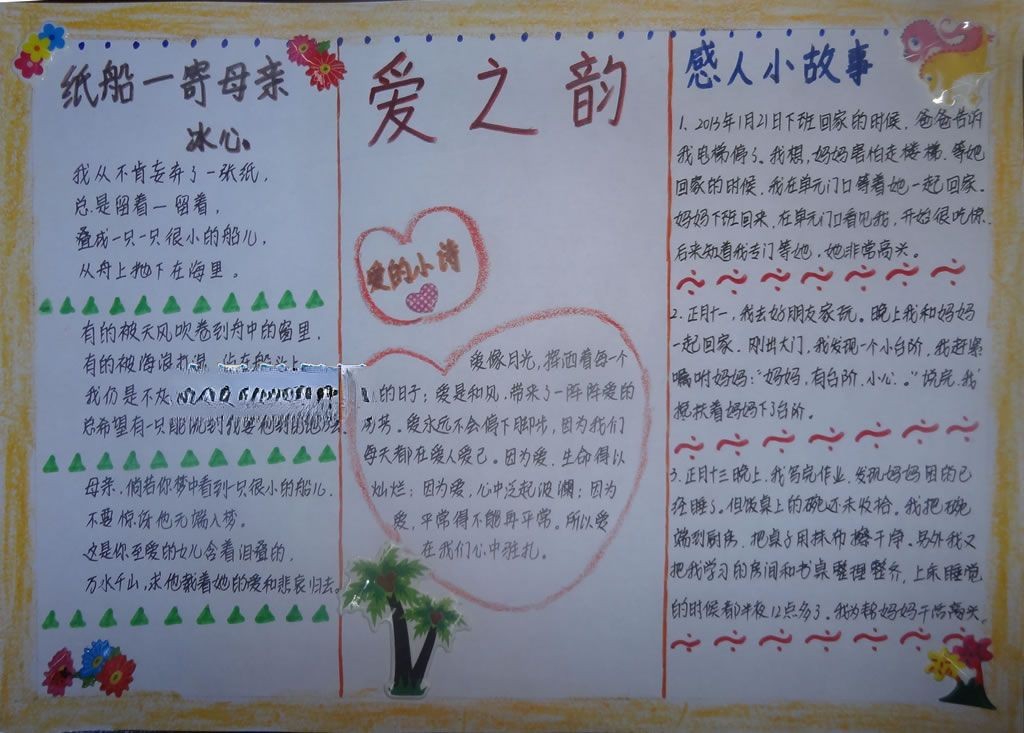 纸船一寄母亲
冰心
我从不肯妄弃了一张纸，
总是留着一留着，
叠成一只一只很小的船儿，
从舟上抛下在海里。
有的被天风吹卷到舟中的窗里，
有的被海浪打湿，
我仍是不灰
总希望有一只能流到我要
母亲，倘若你梦中看到一只很小的船儿，
不要惊讶他无端入梦。
这是你至爱的女儿含着泪叠的，
万水千山，求他载着她的爱和悲哀归去。
爱之韵
爱的小诗
爱像月光，挥洒着每一个
的日子；爱是和风，带来了一阵阵爱的
芬芳。爱永远不会停下脚步，因为我们
每天都在爱人爱己。因为爱，生命得以
灿烂；因为爱，心中泛起波澜；因为
爱，平常得不能再平常。所以爱
在我们心中驻扎。
感人小故事
1、2013年1月21日下班回家的时候，爸爸告诉
我电梯停了。我想，妈妈害怕走楼梯，等她
回家的时候，我在单元门口等着她一起回家。
妈妈下班回来，在单元门口看见我，开始很吃惊，
后来知着我专门等她，她非常高兴。
2、正月十一，我去好朋友家玩。晚上我和妈妈
一起回家，刚出大门，我发现一个小台阶，我赶紧
嘱咐妈妈：“妈妈，有台阶，小心。”说完，我
搀扶着妈妈下了台阶。
3、正月十三晚上，我写完作业，发现妈妈困的已
经睡了。但饭桌上的碗还未收拾。我把碗
端到厨房，把桌子用抹布擦干净。另外我又
把我学习的房间和书桌整理整齐，上床睡觉
的时候都半夜12点多了。我为帮妈妈干活高兴。